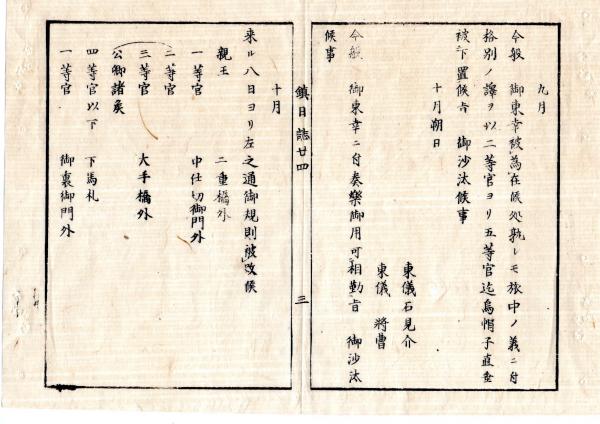 九月
今般 御東幸被為在候処孰レモ旅中ノ義ニ付
格別ノ譯ヲ以二等官ヨリ五等官迄烏帽子直垂
被下置候旨 御沙汰候事
十月朔日
東儀石見介
東儀 将曹
今般 御東幸ニ付奏樂御用可相勤旨 御沙汰
候事
鎮日誌廿四
三
十月
来ル八日ヨリ左之通御規則被改候
親王 二重橋外
一等官 中仕切御門外
二等官
三等官 大手橋外
公卿諸矦
四等官以下 下馬札
一等官 御裏御門外